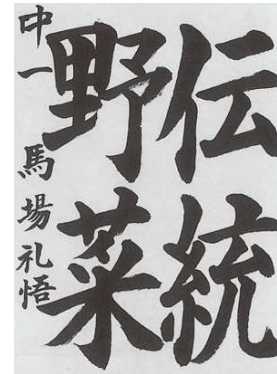 伝統
野菜
中一 馬場礼悟